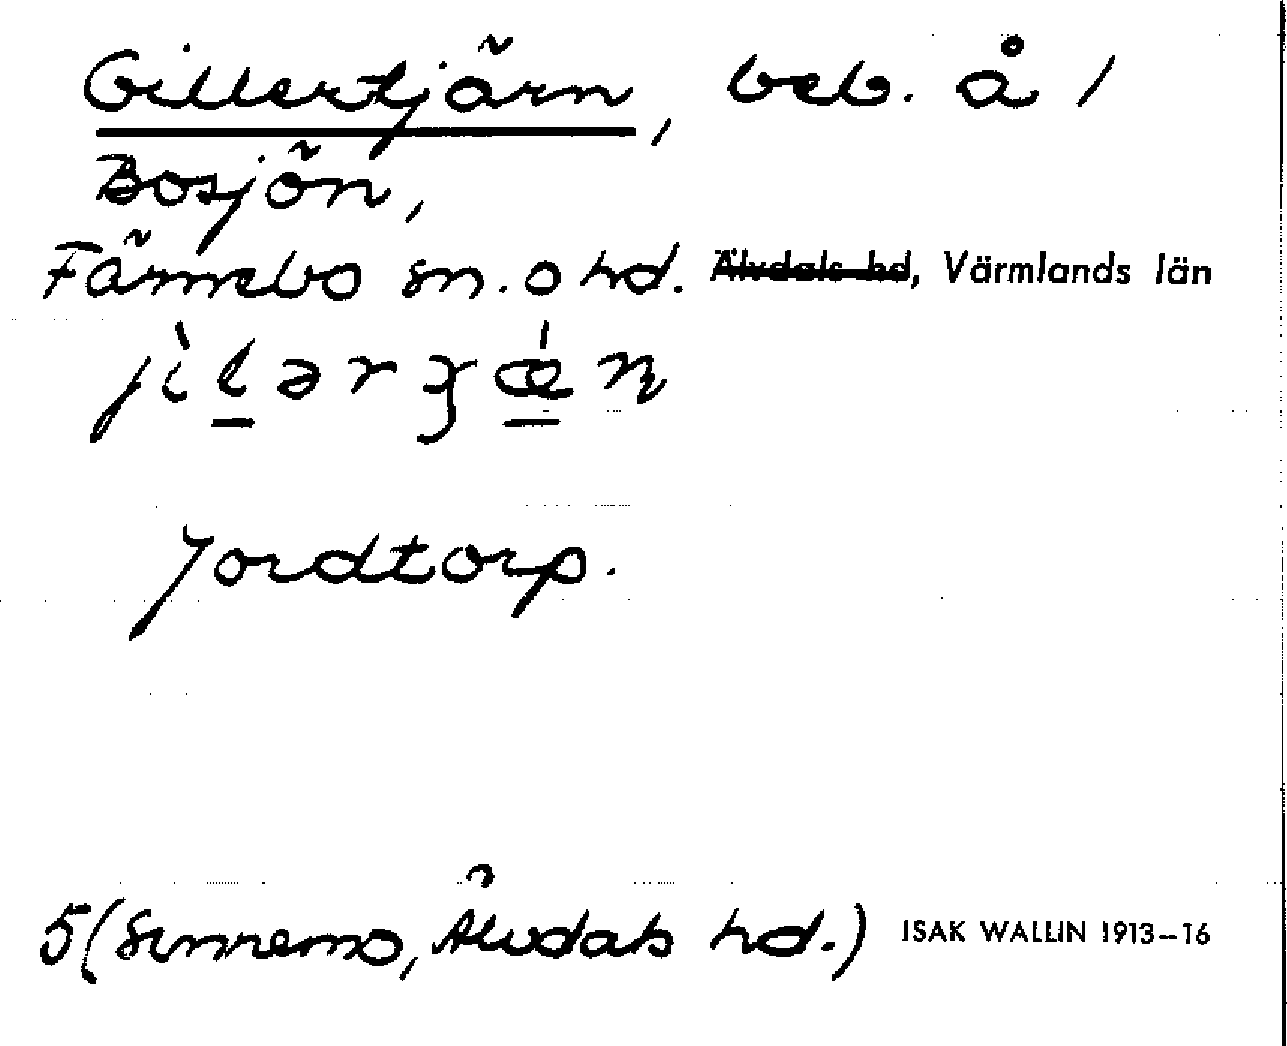 Gillertjärn, beb. å 1
Bosjön,
Färnebo sn. o hd. Älvdals hd, Värmlands län
Jordtorp.
5 (Sunnemo, Älvdals hd.) ISAK WALLIN 1913–16